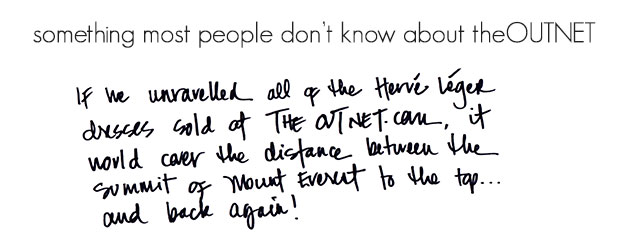 something most people don't know about theOUTNET
If we unravelled all of the Hervé Léger
dresses sold at THE OUTNET.com, it
would cover the distance between the
summit of Mount Everest to the top...
and back again!